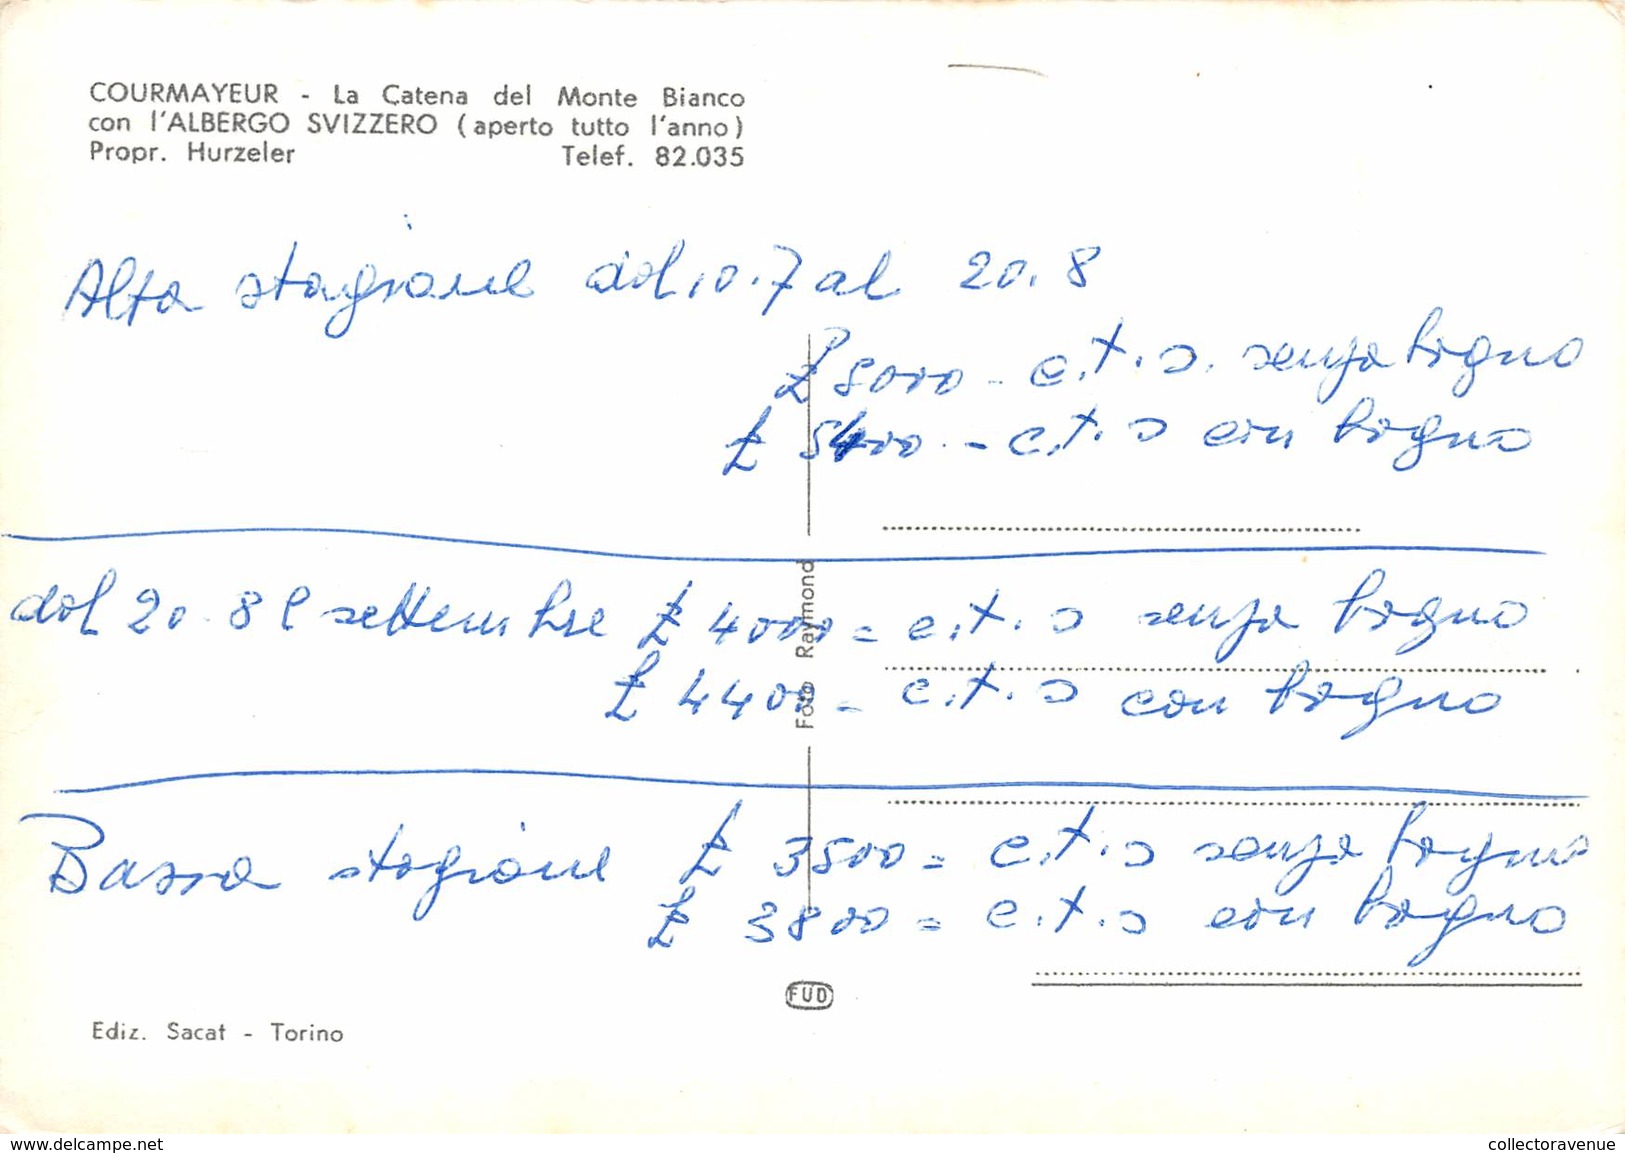 COURMAYEUR - La Catena del Monte Bianco
con l'ALBERGO SVIZZERO (aperto tutto l'anno)
Propr. Hurzeler Telef. 82.035
Alta stagione dal 10.7 al 20.8
£ 5000 - c.t.s. senza bagno
£ 5400 - c.t.s con bagno
dal 20.8 e settembre £ 4000 = c.t.s senza bagno
£ 4400 = c.t.s con bagno
Bassa stagione £ 3500 = c.t.s senza bagno
£ 3800 = c.t.s con bagno
Foto Raymond
FUD
Ediz. Sacat - Torino
www.delcampe.net
collectoravenue